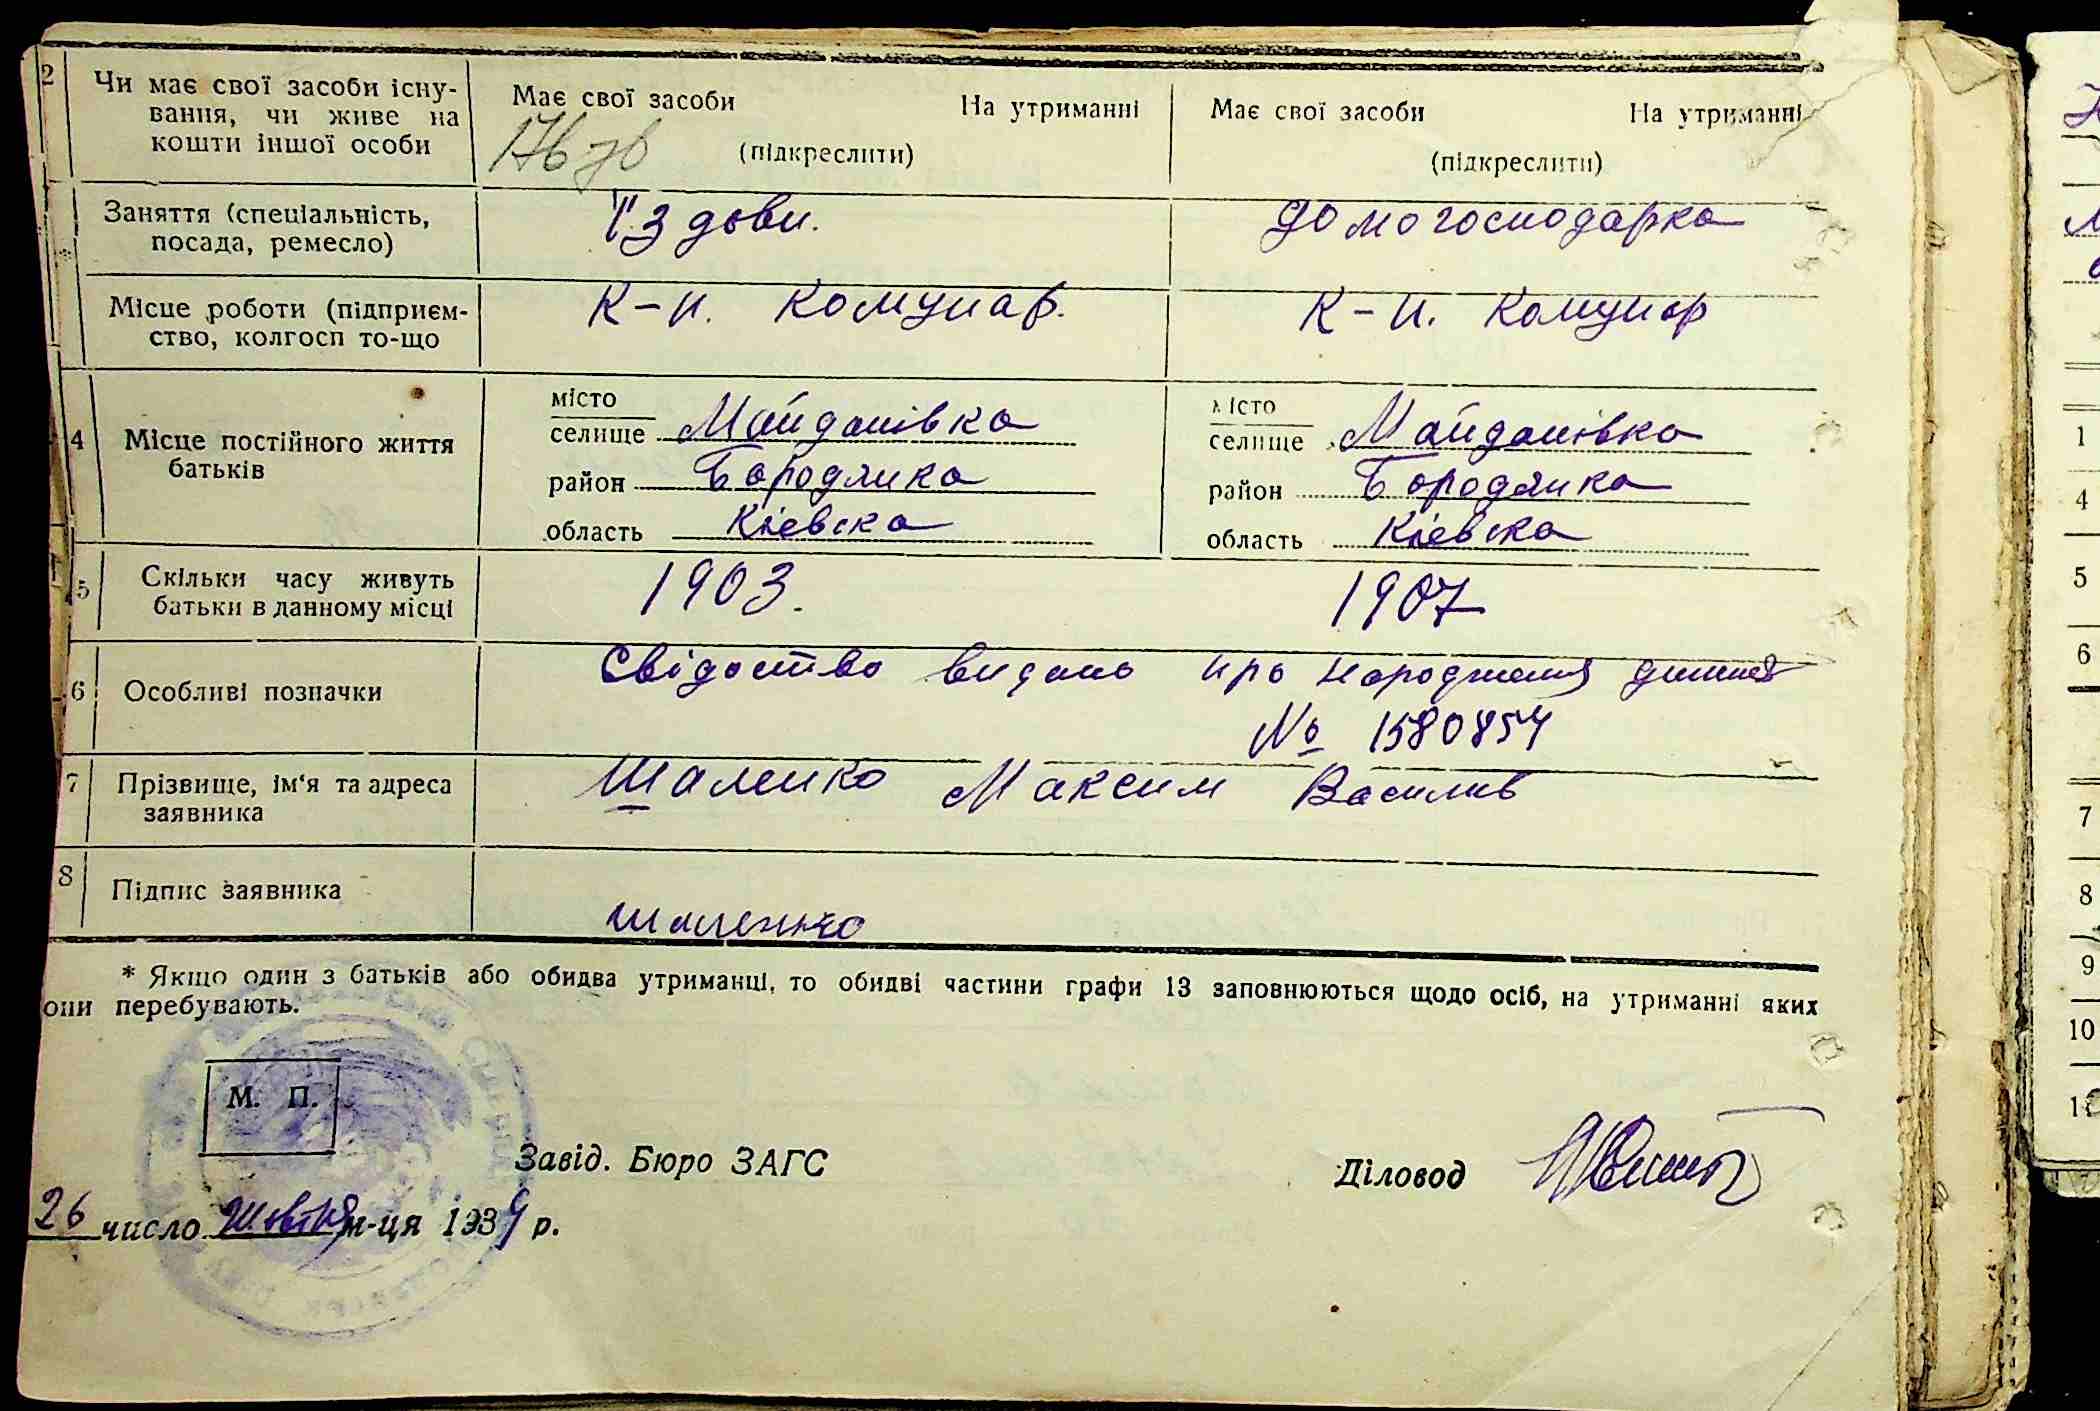 2 Чи має свої засоби існу-
вання, чи живе на
кошти іншої особи
Має свої засоби На утриманні
(підкреслити)
Має свої засоби На утриманні
(підкреслити)
Заняття (спеціальність,
посада, ремесло)
їздови.
домогосподарка
Місце роботи (підприєм-
ство, колгосп то-що
К-п. Комунар.
К-п. Комунар
4 Місце постійного життя
батьків
місто
селище Майданівка
район Бородянка
область Кієвска
місто
селище Майданівка
район Бородянка
область Кієвска
5 Скільки часу живуть
батьки в данному місці
1903.
1907
6 Особливі позначки
Свідоство видано про народження дитини
№ 1580854
7 Прізвище, ім'я та адреса
заявника
Шаленко Максим Василив
8 Підпис заявника
Шаленко
* Якщо один з батьків або обидва утриманці, то обидві частини графи 13 заповнюються щодо осіб, на утриманні яких
они перебувають.
М. П.
Завід. Бюро ЗАГС
Діловод
26 число Жовтня м-ця 1939 р.
1
4
5
6
7
8
9
10